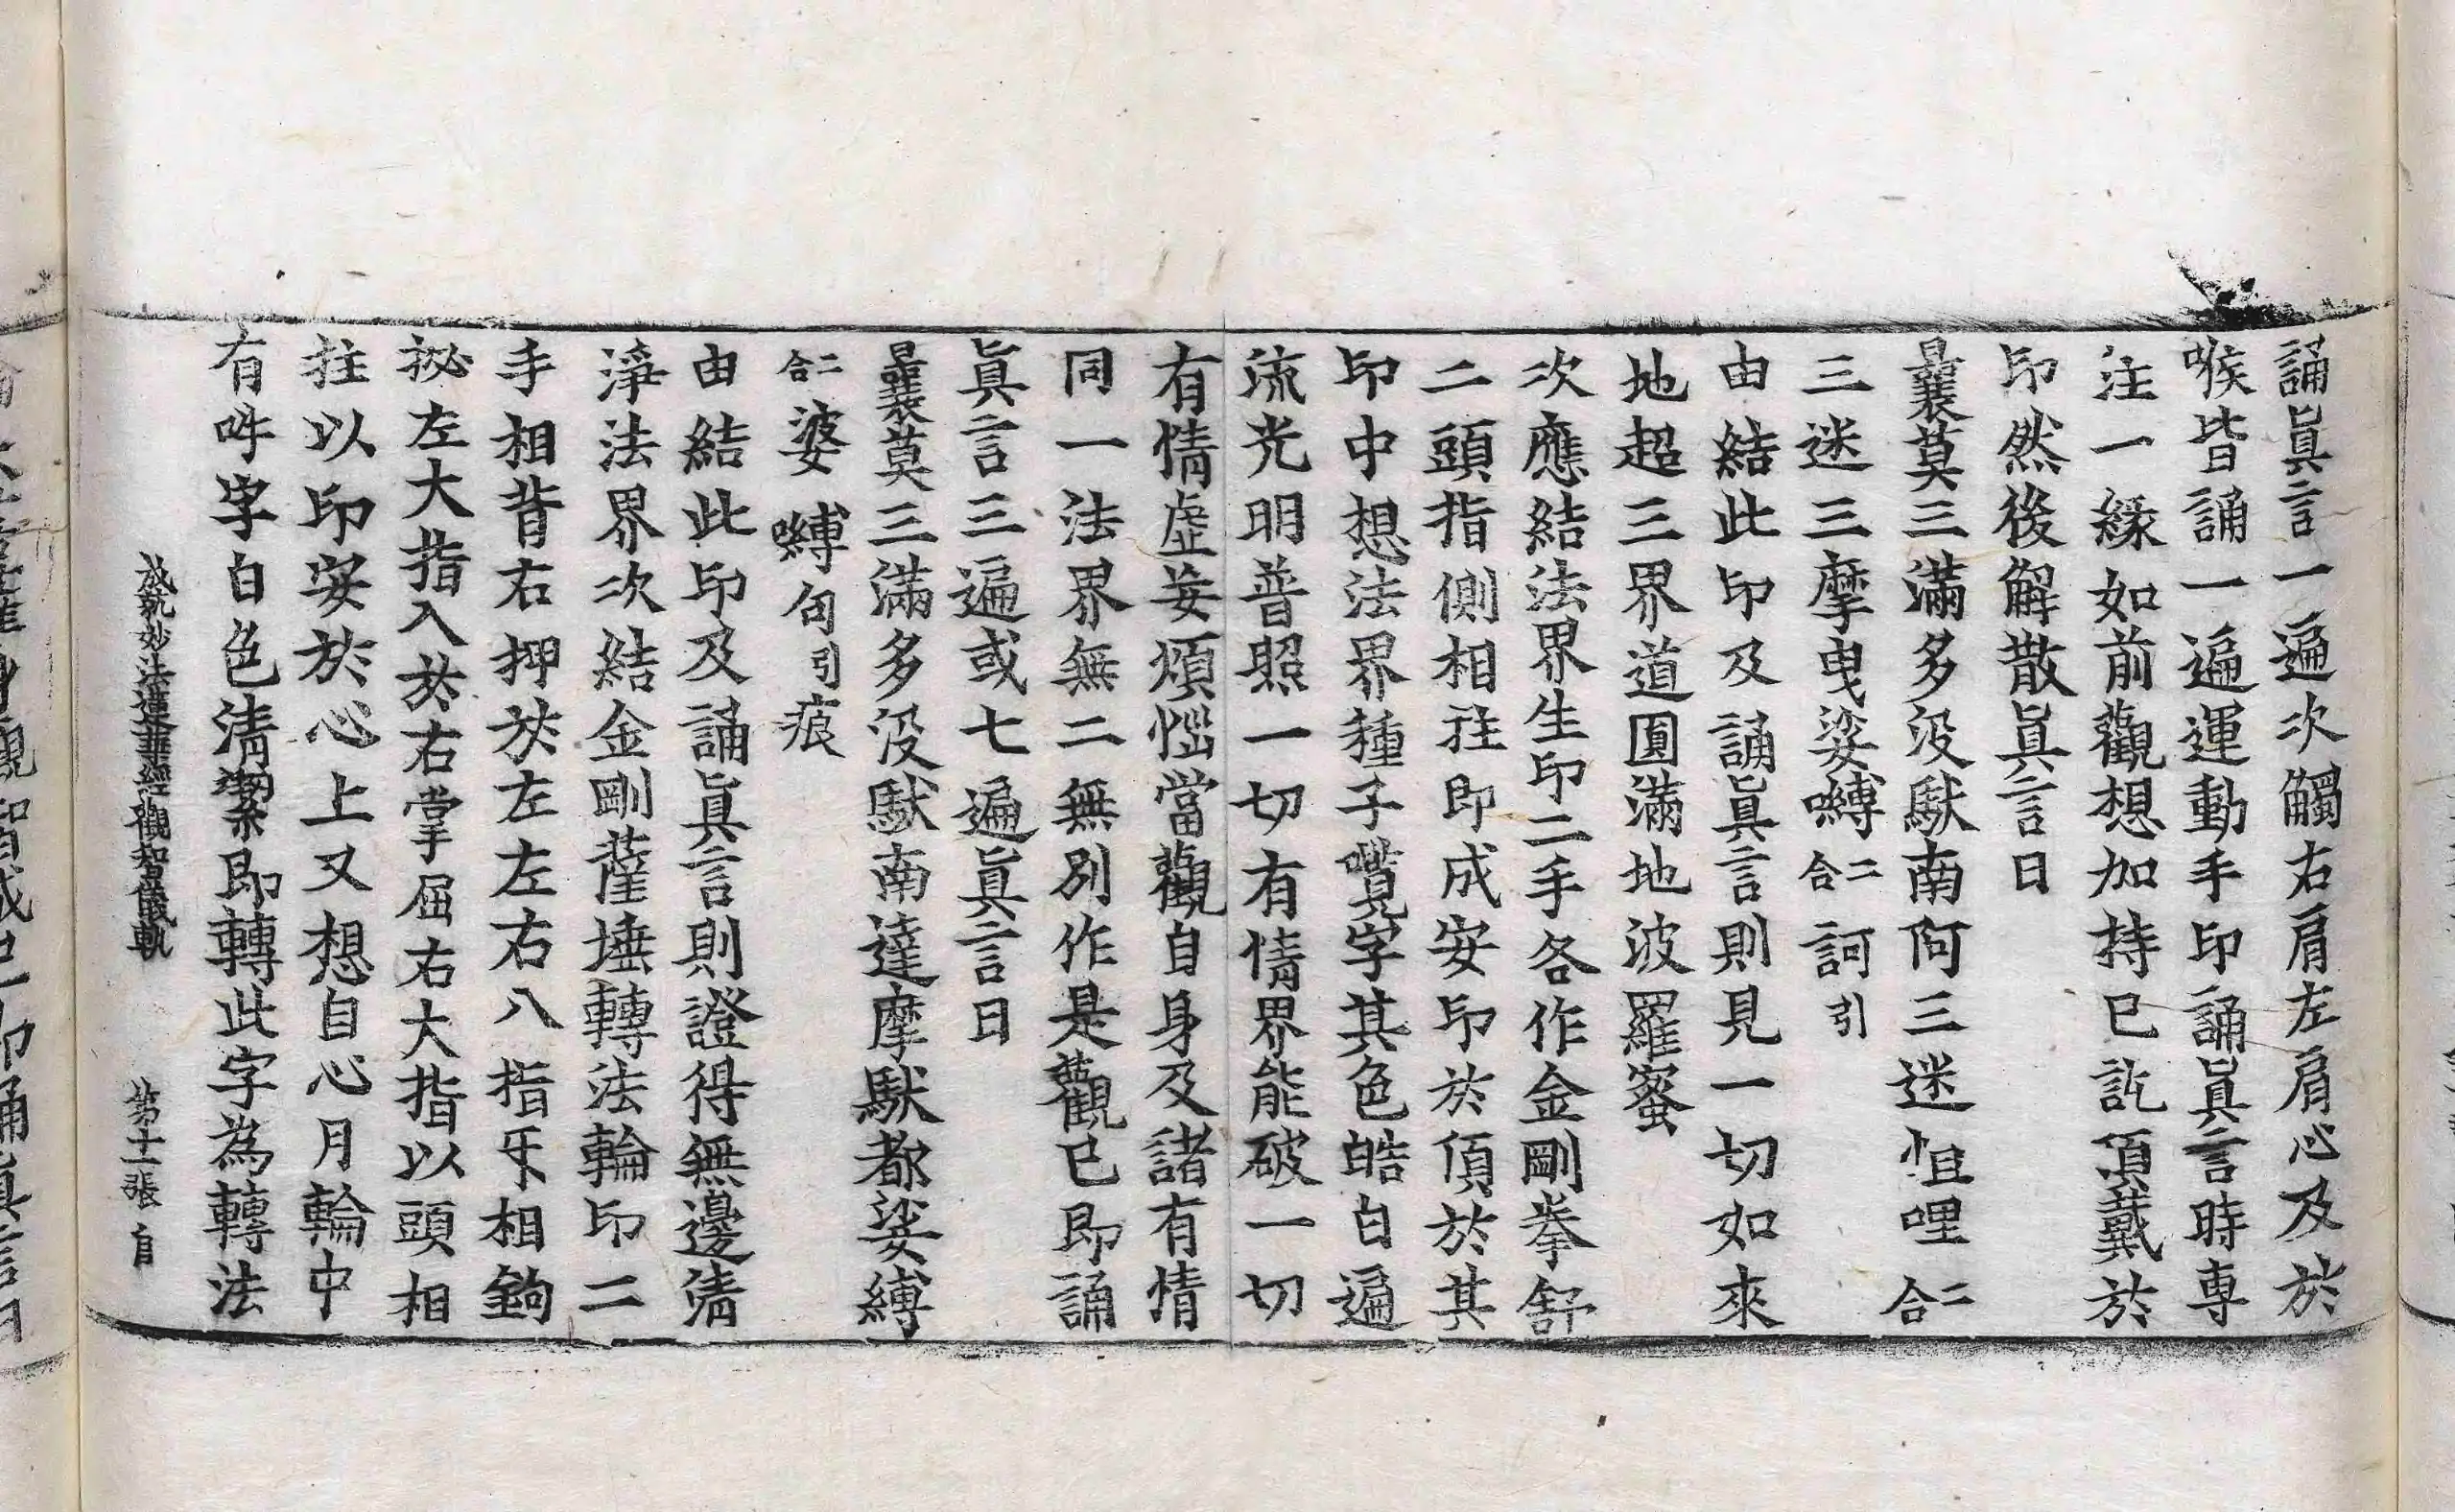 誦眞言一遍次觸右肩左肩心及於
喉皆誦一遍運動手印誦眞言時專
注一緣如前觀想加持已訖頂戴於
印然後解散眞言曰
曩莫三滿多没馱南阿三迷怛哩二合
三迷三摩曳娑嚩二合訶引
由結此印及誦眞言則見一切如來
地超三界道圓滿地波羅蜜
次應結法界生印二手各作金剛拳舒
二頭指側相拄即成安印於頂於其
印中想法界種子㘕字其色皓白遍
流光明普照一切有情界能破一切
有情虛妄煩惱當觀自身及諸有情
同一法界無二無別作是觀已即誦
眞言三遍或七遍眞言曰
曩莫三滿多没馱南達摩馱都娑嚩
二合婆嚩句引痕
由結此印及誦眞言則證得無邊清
淨法界次結金剛薩埵轉法輪印二
手相背右押於左左右八指牙相鉤
祕左大指入於右掌屈右大指以頭相
拄以印安於心上又想自心月輪中
有吽字白色清潔即轉此字為轉法
成就妙法蓮華經觀智儀軌 第十一張 自